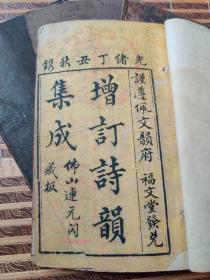 光緒丁丑秋鐫
謹遵佩文韻府 福文堂發兌
增訂詩韻
集成
佛山連元閣
藏板